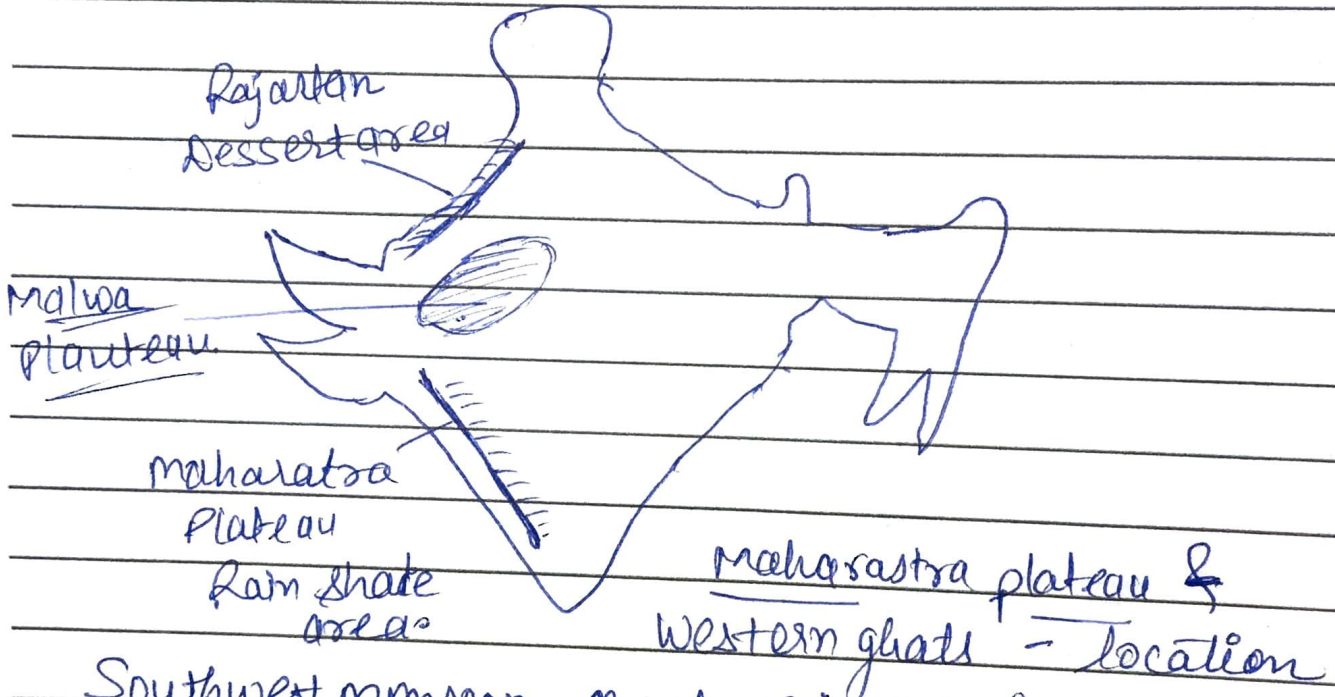 Rajastan
Dessert area
Malwa
Plauteau
Maharatra
Plateau
Rain shate
areas
Maharastra plateau &
Western ghats - location
Southwest